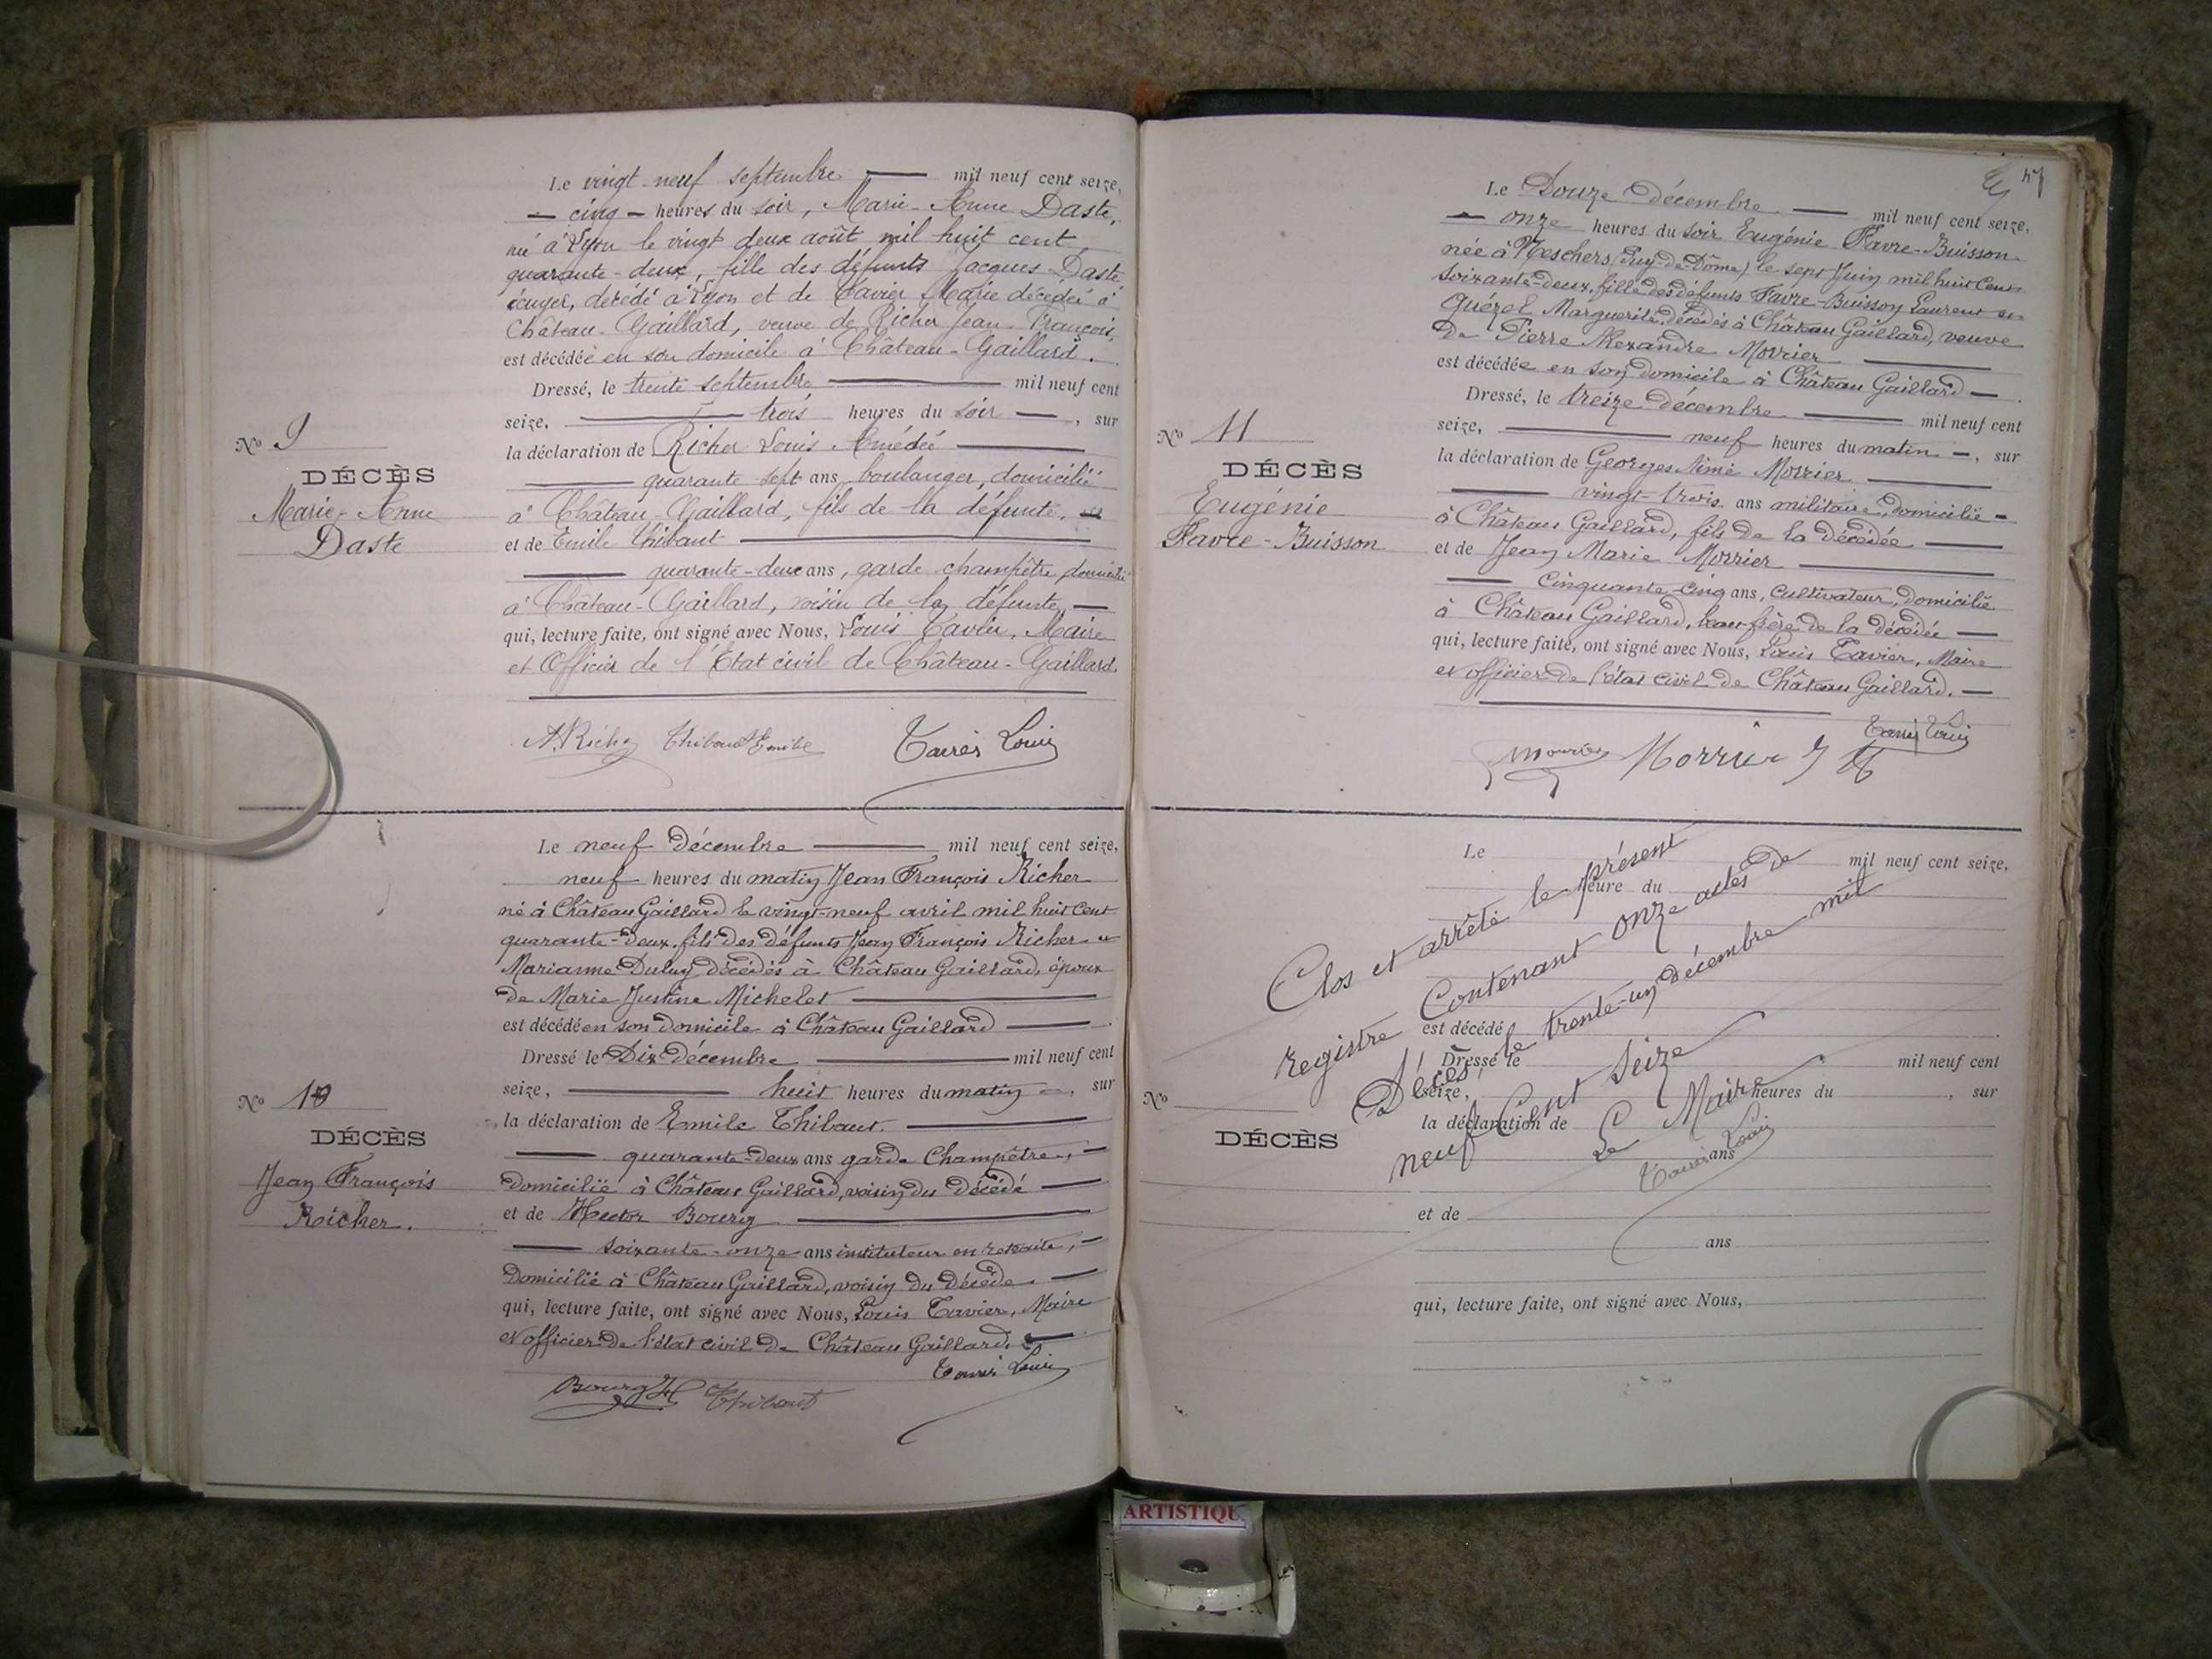 Le vingt-neuf septembre — mil neuf cent seize,
— cinq — heures du soir, Marie-Anne Daste,
né à Lyon le vingt deux août mil huit cent
quarante-deux, fille des défunts Jacques Daste
décédé à Lyon et de Tavier Marie décédée à
Château-Gaillard, veuve de Richer Jean-François,
est décédée en son domicile à Château-Gaillard.
Dressé, le trente septembre — mil neuf cent
seize, — trois heures du soir —, sur
la déclaration de Richer Louis Amédée —
— quarante sept ans, boulanger, domicilié
à Château-Gaillard, fils de la défunte, —
et de Emile Thibaut —
— quarante-deux ans, garde champêtre domicilié
à Château-Gaillard, voisin de la défunte, —
qui, lecture faite, ont signé avec Nous, Louis Tavier, Maire
et Officier de l'Etat civil de Château-Gaillard.
No 9
DÉCÈS
Marie-Anne
Daste
A. Richer Thibaut Emile Tavier Louis
Le neuf Décembre — mil neuf cent seize,
neuf heures du matin Jean François Richer
né à Château Gaillard le vingt-neuf avril mil huit cent
quarante-deux, fils des défunts Jean François Richer et
Marianne Duluy décédés à Château Gaillard, époux
de Marie Justine Michelet —
est décédé en son domicile à Château Gaillard —
Dressé le Dix décembre — mil neuf cent
seize, — huit heures du matin —, sur
la déclaration de Emile Thibaut. —
— quarante-deux ans garde Champêtre, —
Domicilié à Château Gaillard, voisin du décédé —
et de Hector Bourg —
— soixante-onze ans instituteur en retraite, —
Domicilié à Château Gaillard, voisin du décédé —
qui, lecture faite, ont signé avec Nous, Louis Tavier, Maire
et officier de l'état civil de Château Gaillard. —
No 10
DÉCÈS
Jean François
Richer.
Tavier Louis
Bourg H Thibaut
47
Le Douze décembre — mil neuf cent seize,
— onze heures du soir Eugénie Favre-Buisson
née à Neschers (Puy-de-Dôme) le sept Juin mil huit cent
soixante-deux, fille des défunts Favre-Buisson Laurent et
Quézel Marguerite, décédés à Château Gaillard, veuve
de Pierre Alexandre Morrier —
est décédée en son domicile à Château Gaillard —.
Dressé, le treize décembre — mil neuf cent
seize, — neuf heures du matin —, sur
la déclaration de Georges Aimé Morrier —
— vingt-trois ans militaire, domicilié —
à Château Gaillard, fils de la décédée —
et de Jean Marie Morrier —
— Cinquante-cinq ans, Cultivateur, domicilié
à Château Gaillard, beau-frère de la décédée —
qui, lecture faite, ont signé avec Nous, Louis Tavier, Maire
et officier de l'état civil de Château Gaillard. —
No 11
DÉCÈS
Eugénie
Favre-Buisson
Tavier Louis
Morrier Morrier J M
Le mil neuf cent seize,
heure du
est décédé
Dressé le mil neuf cent
seize, heures du , sur
la déclaration de
ans
et de
ans
qui, lecture faite, ont signé avec Nous,
No
DÉCÈS
Clos et arrêté le présent
registre Contenant onze actes de
Décès, le trente-un décembre mil
neuf Cent Seize
Le Maire
Tavier Louis
ARTISTIQU